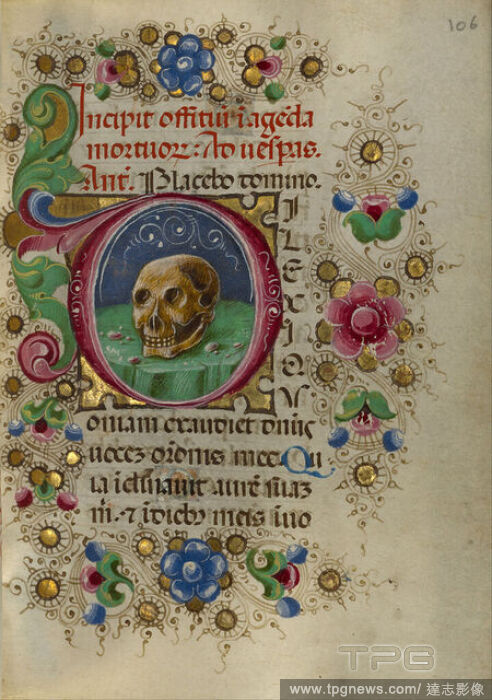 106
Incipit offitiuȝ ī agēda
mortuoꝝ: Ad uesp̄as.
Anṫ. Placebo domino.
D
I
L
E
X
I
Q
V
oniam exaudiet dn̄s
uocez orōnis mee. Qu
ia īclinauit aurē suaz
m̄. ⁊ ī dieb meis īuo
TPG
www.tpgnews.com/ 達志影像